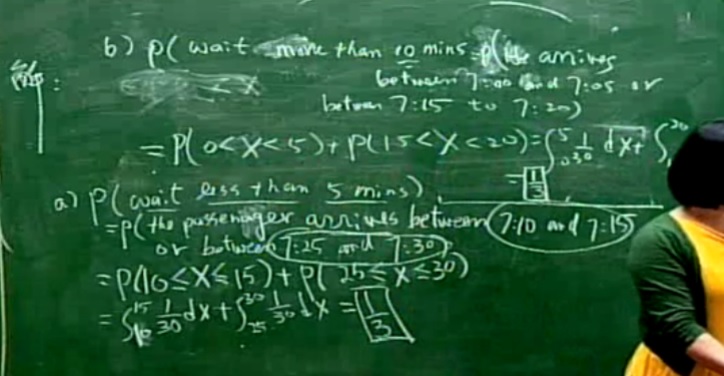 b) P( wait more than 10 mins = P( he arrives
between 7:00 and 7:05 or
betwen 7:15 to 7:20)
= P(0<X<5) + P(15<X<20) = ∫₀⁵ 1/30 dx + ∫ 20
= 1/3
a) P(wait less than 5 mins)
= P( the passenager arrives between 7:10 and 7:15
or between 7:25 and 7:30)
= P(10≤X≤15) + P( 25≤X≤30)
= ∫₁₀¹⁵ 1/30 dx + ∫₂₅³⁰ 1/30 dx = 1/3